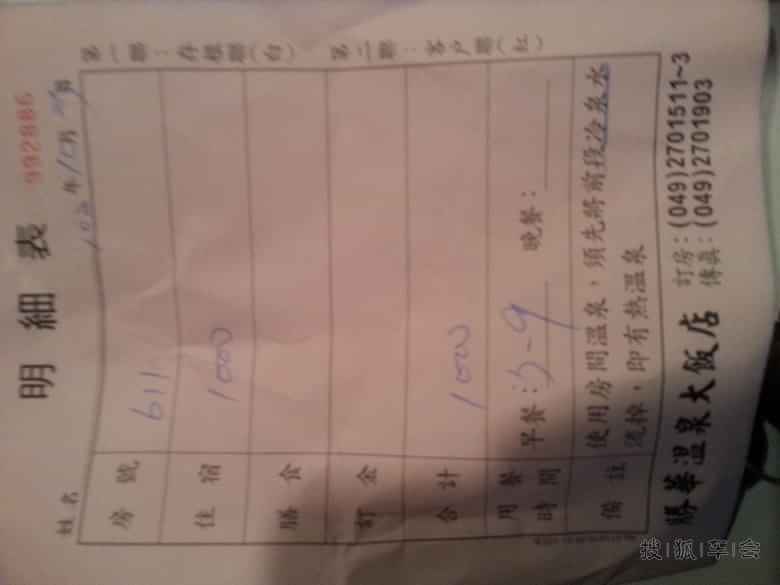 明細表
992886
姓名
102年10月 日
房號 611
住宿 1000
膳食
訂金
合計 1000
用餐時間 早餐: -9 晚餐:
備註 使用房間溫泉,須先將前段冷泉水
流掉,即有熱溫泉
第一聯:存根聯(白) 第二聯:客戶聯(紅)
勝華溫泉大飯店
訂房:(049)2701511~3
傳真:(049)2701903
搜|狐|车|会